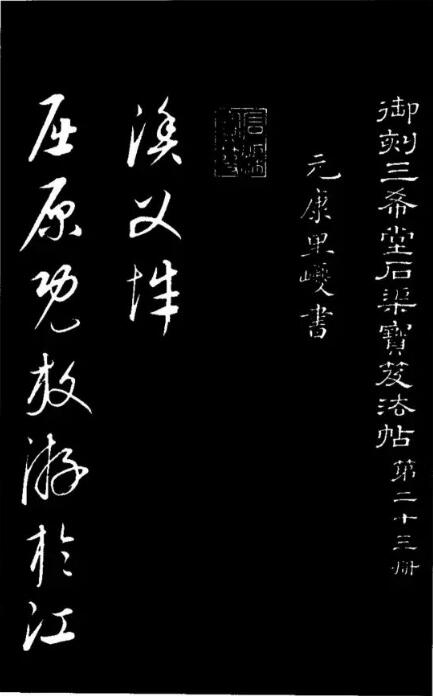 御刻三希堂石渠寶笈法帖第二十三冊
元康里巎書
漁父辭
屈原既放游於江